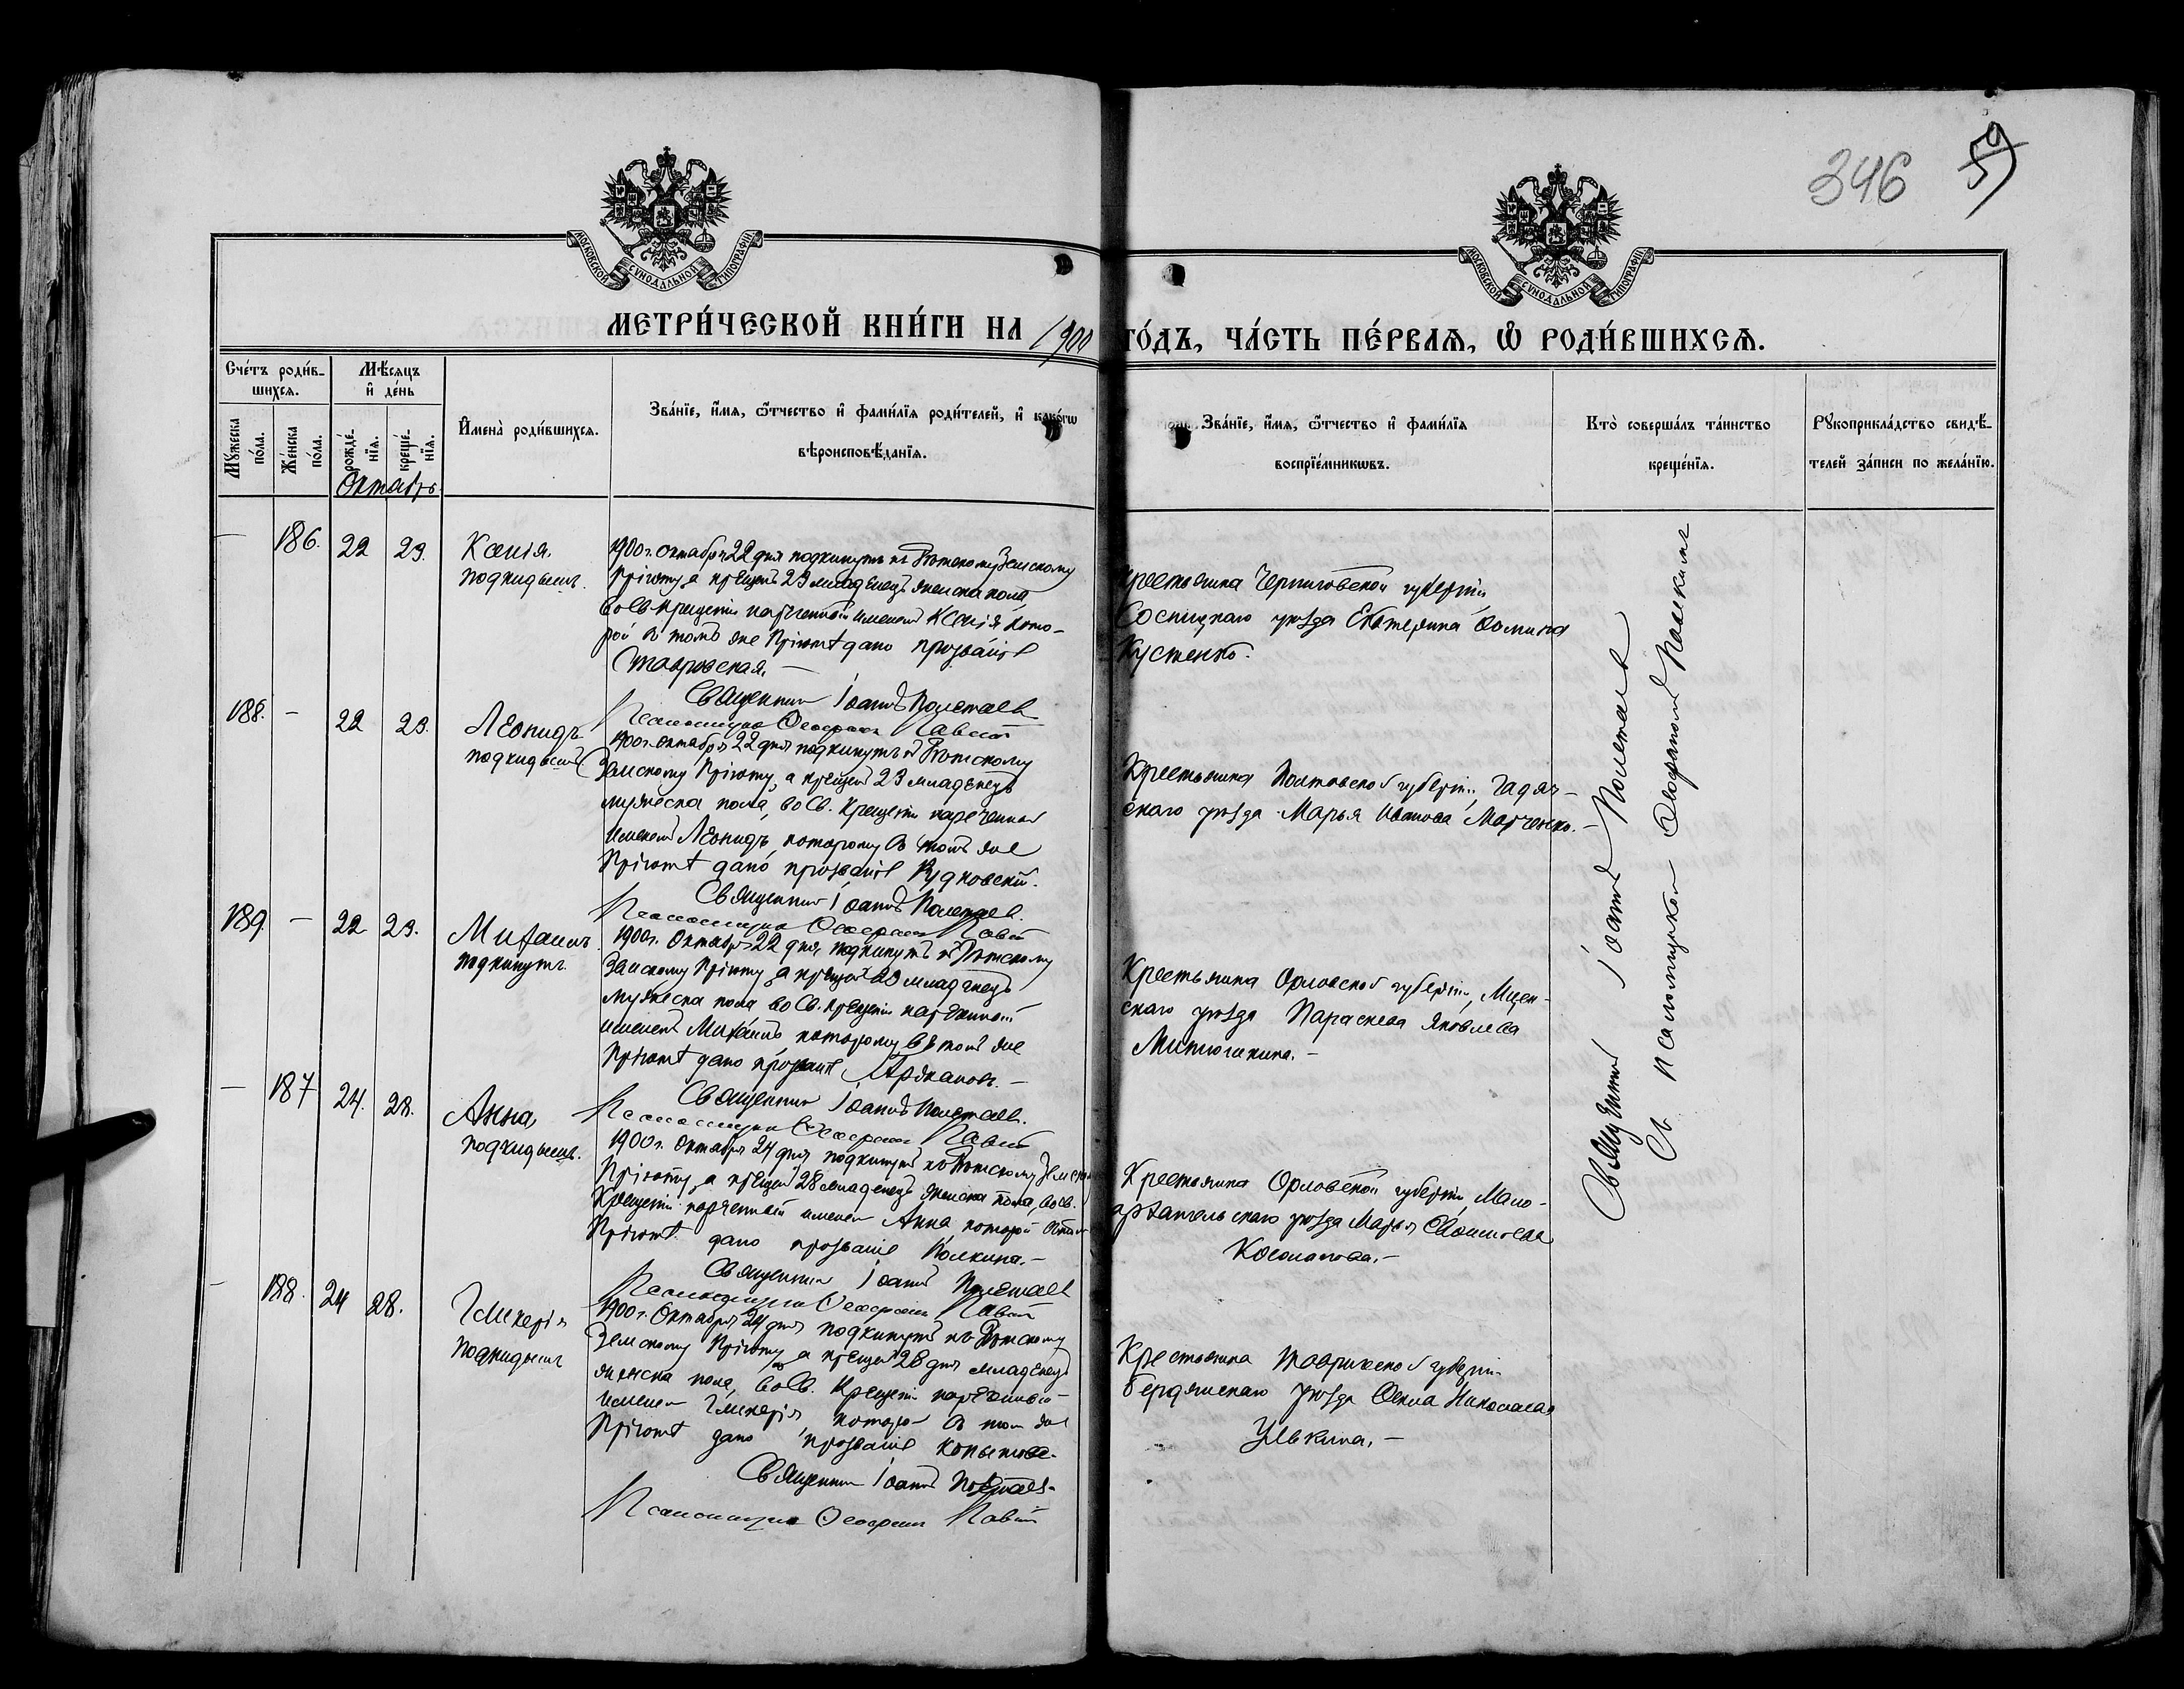 346 59
МОСКОВСКОЙ СУНОДАЛЬНОЙ ТИПОГРАФІИ
МОСКОВСКОЙ СУНОДАЛЬНОЙ ТИПОГРАФІИ
МЕТРИ́ЧЕСКОЙ КНИ́ГИ НА 1900 ГО́ДЪ, ЧА́СТЬ ПЕ́РВАѦ, Ѡ҆ РОДИ́ВШИХСѦ.
Сче́тъ роди́в-
шихся.
Мѣ́сяцъ
и҆ де́нь
Мꙋ́жеска
по́ла.
Же́нска
по́ла.
рожде́-
нїѧ.
креще́-
нїѧ.
Октябрь
И҆мена̀ роди́вшихсѧ.
Зва́нїе, и҆́мѧ, ѻ҆́тчество и҆ фами́лїѧ роди́телей, и҆ како́гѡ
вѣроисповѣ́данїѧ.
Зва́нїе, и҆́мѧ, ѻ҆́тчество и҆ фами́лїѧ
воспрїе́мникѡвъ.
Кто̀ соверша́лъ та́инство
креще́нїѧ.
Рꙋкоприкла́дство свидѣ́-
телей за́писи по жела́нїю.
— 186. 22 23. Ксенія
подкидышъ.
1900 г. октября 22 дня подкинутъ къ Земскому
Пріюту, а крещенъ 23 младенецъ женска пола,
во Св. Крещеніи нареченный именемъ Ксенія, кото-
рой въ томъ же Пріютѣ дано прозваніе
Тавровская. —
Священникъ Іоаннъ Полетаевъ
Псаломщикъ
Крестьянка Черниговской губерніи
Сосницкаго уѣзда Екатерина Фомина
Кустенко.
188. — 22 23. Леонидъ
подкидышъ
1900 г. октября 22 дня подкинутъ къ
Земскому Пріюту, а крещенъ 23 младенецъ
мужеска пола, во Св. Крещеніи нареченный
именемъ Леонидъ, которому въ томъ же
Пріютѣ дано прозваніе Рудковскій.
Священникъ Іоаннъ Полетаевъ.
Псаломщикъ
Крестьянка Полтавской губерніи, Гадяч-
скаго уѣзда Марья Иванова Марченко. —
189. — 22 23. Михаилъ
подкинутъ.
1900 г. Октября 22 дня, подкинутъ къ
Земскому Пріюту, а крещенъ 23 младенецъ
мужеска пола во Св. Крещеніи нареченный
именемъ Михаилъ, которому въ томъ же
Пріютѣ дано прозваніе Аржановъ. —
Священникъ Іоаннъ Полетаевъ.
Псаломщикъ
Крестьянка Орловской губерніи, Мцен-
скаго уѣзда Параскева Яковлева
Митюшкина. —
— 187 24. 28. Анна
подкидышъ.
1900 г. Октября 24 дня подкинутъ къ
Пріюту, а крещенъ 28 младенецъ женска пола, во Св.
Крещеніи нареченный именемъ Анна, которой
Пріютѣ дано прозваніе Полкина. —
Священникъ Іоаннъ Полетаевъ
Псаломщикъ
Крестьянка Орловской губерніи, Мало-
архангельскаго уѣзда Марья
Косолапова. —
— 188. 24 28. Гликерія
Подкидышъ
1900 г. Октября 24 дня подкинутъ къ
Земскому Пріюту, а крещенъ 28 дня младенецъ
женска пола, во Св. Крещеніи нареченный
именемъ Гликерія, которой въ томъ же
Пріютѣ дано прозваніе Копытова.
Священникъ Іоаннъ Полетаевъ.
Псаломщикъ
Крестьянка Таврической губерніи
Бердянскаго уѣзда Фекла Николаева
Улькина. —
Священникъ Іоаннъ Полетаевъ
Съ псаломщикомъ